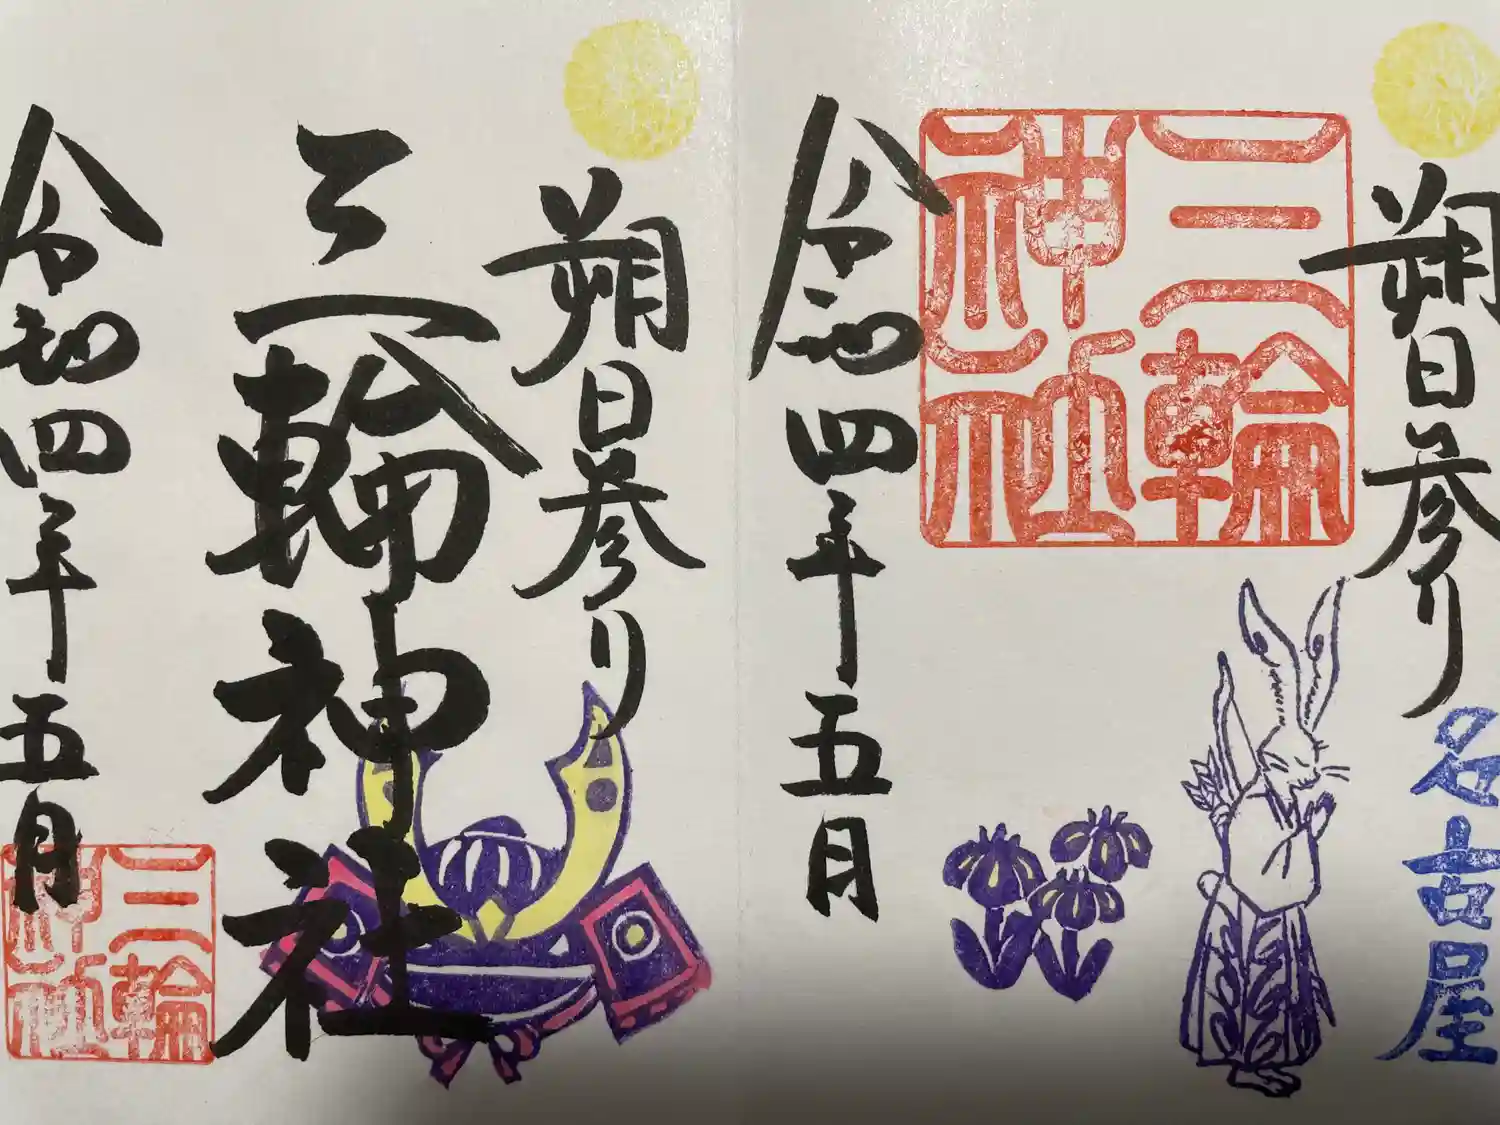 朔日参り
名古屋
三輪神社
令和四年五月
朔日参り
三輪神社
令和四年五月
三輪神社